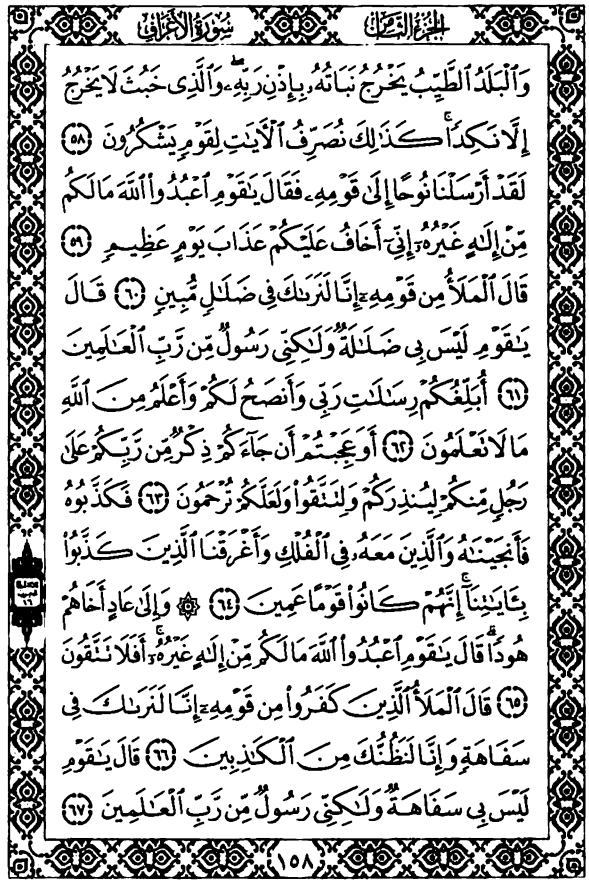 الجزء الثامن
سورة الأعراف
وَٱلْبَلَدُ ٱلطَّيِّبُ يَخْرُجُ نَبَاتُهُۥ بِإِذْنِ رَبِّهِۦۖ وَٱلَّذِى خَبُثَ لَا يَخْرُجُ
إِلَّا نَكِدًاۚ كَذَٰلِكَ نُصَرِّفُ ٱلْـَٔايَٰتِ لِقَوْمٍ يَشْكُرُونَ ٥٨
لَقَدْ أَرْسَلْنَا نُوحًا إِلَىٰ قَوْمِهِۦ فَقَالَ يَٰقَوْمِ ٱعْبُدُوا۟ ٱللَّهَ مَا لَكُم
مِّنْ إِلَٰهٍ غَيْرُهُۥٓ إِنِّىٓ أَخَافُ عَلَيْكُمْ عَذَابَ يَوْمٍ عَظِيمٍ ٥٩
قَالَ ٱلْمَلَأُ مِن قَوْمِهِۦٓ إِنَّا لَنَرَىٰكَ فِى ضَلَٰلٍ مُّبِينٍ ٦٠ قَالَ
يَٰقَوْمِ لَيْسَ بِى ضَلَٰلَةٌ وَلَٰكِنِّى رَسُولٌ مِّن رَّبِّ ٱلْعَٰلَمِينَ
٦١ أُبَلِّغُكُمْ رِسَٰلَٰتِ رَبِّى وَأَنصَحُ لَكُمْ وَأَعْلَمُ مِنَ ٱللَّهِ
مَا لَا تَعْلَمُونَ ٦٢ أَوَعَجِبْتُمْ أَن جَآءَكُمْ ذِكْرٌ مِّن رَّبِّكُمْ عَلَىٰ
رَجُلٍ مِّنكُمْ لِيُنذِرَكُمْ وَلِتَتَّقُوا۟ وَلَعَلَّكُمْ تُرْحَمُونَ ٦٣ فَكَذَّبُوهُ
فَأَنجَيْنَٰهُ وَٱلَّذِينَ مَعَهُۥ فِى ٱلْفُلْكِ وَأَغْرَقْنَا ٱلَّذِينَ كَذَّبُوا۟
بِـَٔايَٰتِنَآۚ إِنَّهُمْ كَانُوا۟ قَوْمًا عَمِينَ ٦٤ ۞ وَإِلَىٰ عَادٍ أَخَاهُمْ
هُودًاۗ قَالَ يَٰقَوْمِ ٱعْبُدُوا۟ ٱللَّهَ مَا لَكُم مِّنْ إِلَٰهٍ غَيْرُهُۥٓۚ أَفَلَا تَتَّقُونَ
٦٥ قَالَ ٱلْمَلَأُ ٱلَّذِينَ كَفَرُوا۟ مِن قَوْمِهِۦٓ إِنَّا لَنَرَىٰكَ فِى
سَفَاهَةٍ وَإِنَّا لَنَظُنُّكَ مِنَ ٱلْكَٰذِبِينَ ٦٦ قَالَ يَٰقَوْمِ
لَيْسَ بِى سَفَاهَةٌ وَلَٰكِنِّى رَسُولٌ مِّن رَّبِّ ٱلْعَٰلَمِينَ ٦٧
١٥٨